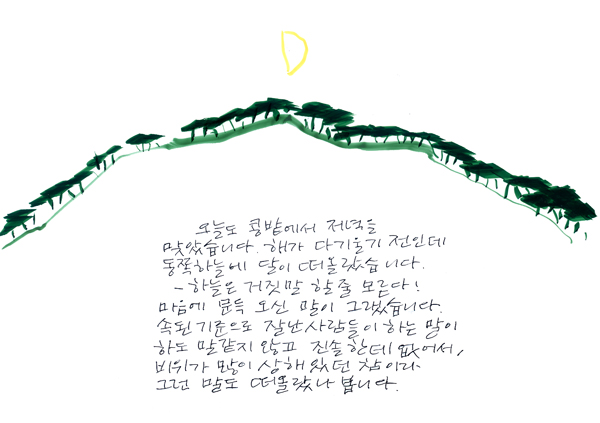 오늘도 콩밭에서 저녁을
맞았습니다. 해가 다기울기 전인데
동쪽하늘에 달이 떠올랐습니다.
- 하늘은 거짓말 할줄 모른다!
마음에 문득 오신 말이 그랬습니다.
속된기준으로 잘난사람들이 하는 말이
하도 말같지 않고 진솔한데 없어서,
비위가 많이 상해 있던 참이라
그런 말도 떠올랐나 봅니다.